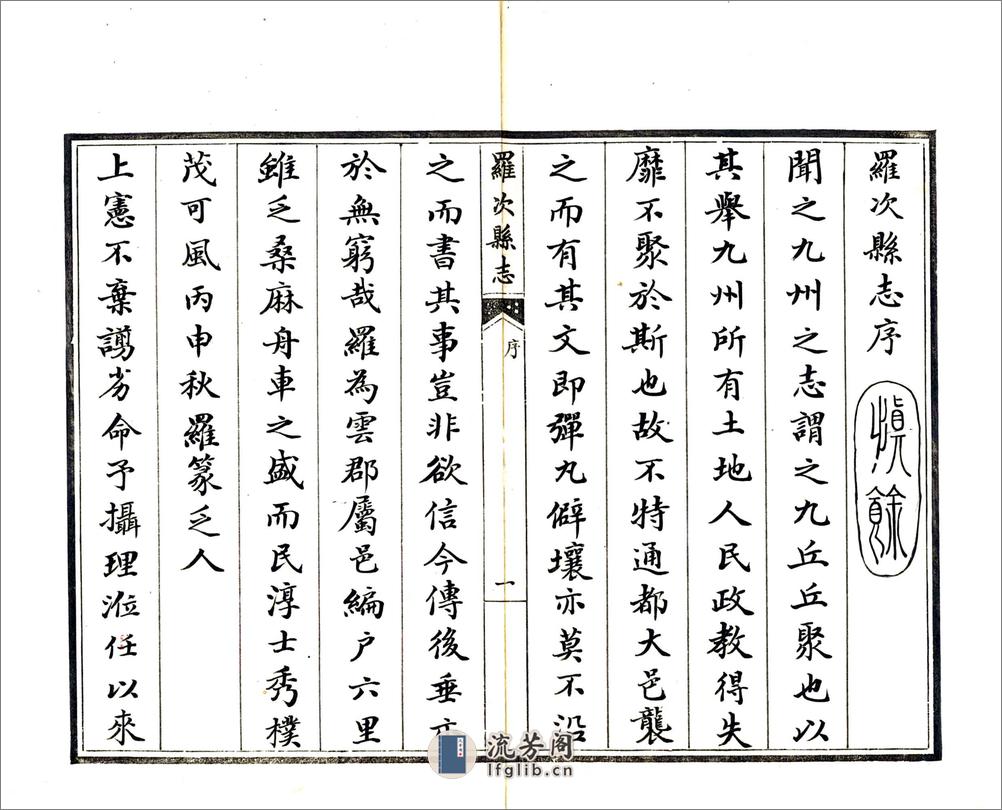 羅次縣志序
慎餘
聞之九州之志謂之九丘丘聚也以
其舉九州所有土地人民政教得失
靡不聚於斯也故不特通都大邑襲
之而有其文即彈丸僻壤亦莫不沿
羅次縣志
序
一
之而書其事豈非欲信今傳後垂示
於無窮哉羅為雲郡屬邑編戶六里
雖乏桑麻舟車之盛而民淳士秀樸
茂可風丙申秋羅篆乏人
上憲不棄譾劣命予攝理涖任以來
流芳阁
lfglib.cn